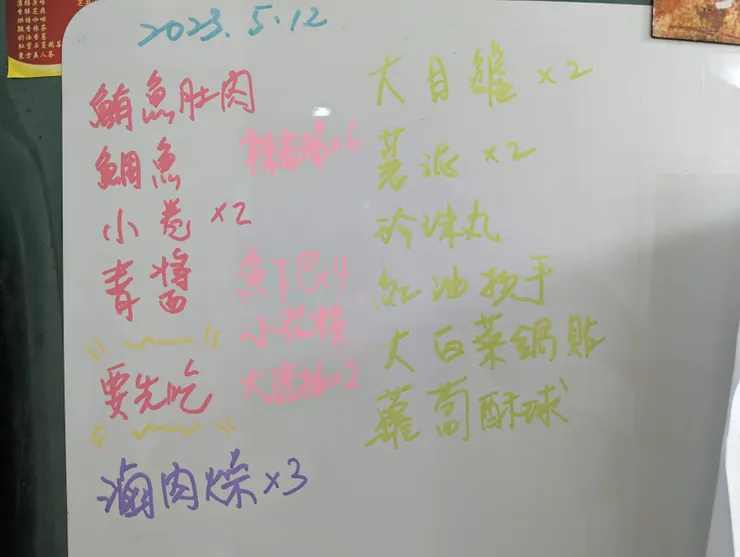 2023.5.12
鮪魚肚肉
鯛魚
小卷 ×2
青醬
要先吃
滷肉燥×3
香腸×6
魚下巴×4
小花枝
大透抽×2
大目 ×2
薯泥 ×2
珍珠丸
紅油抄手
大白菜鍋貼
蘿蔔酥球